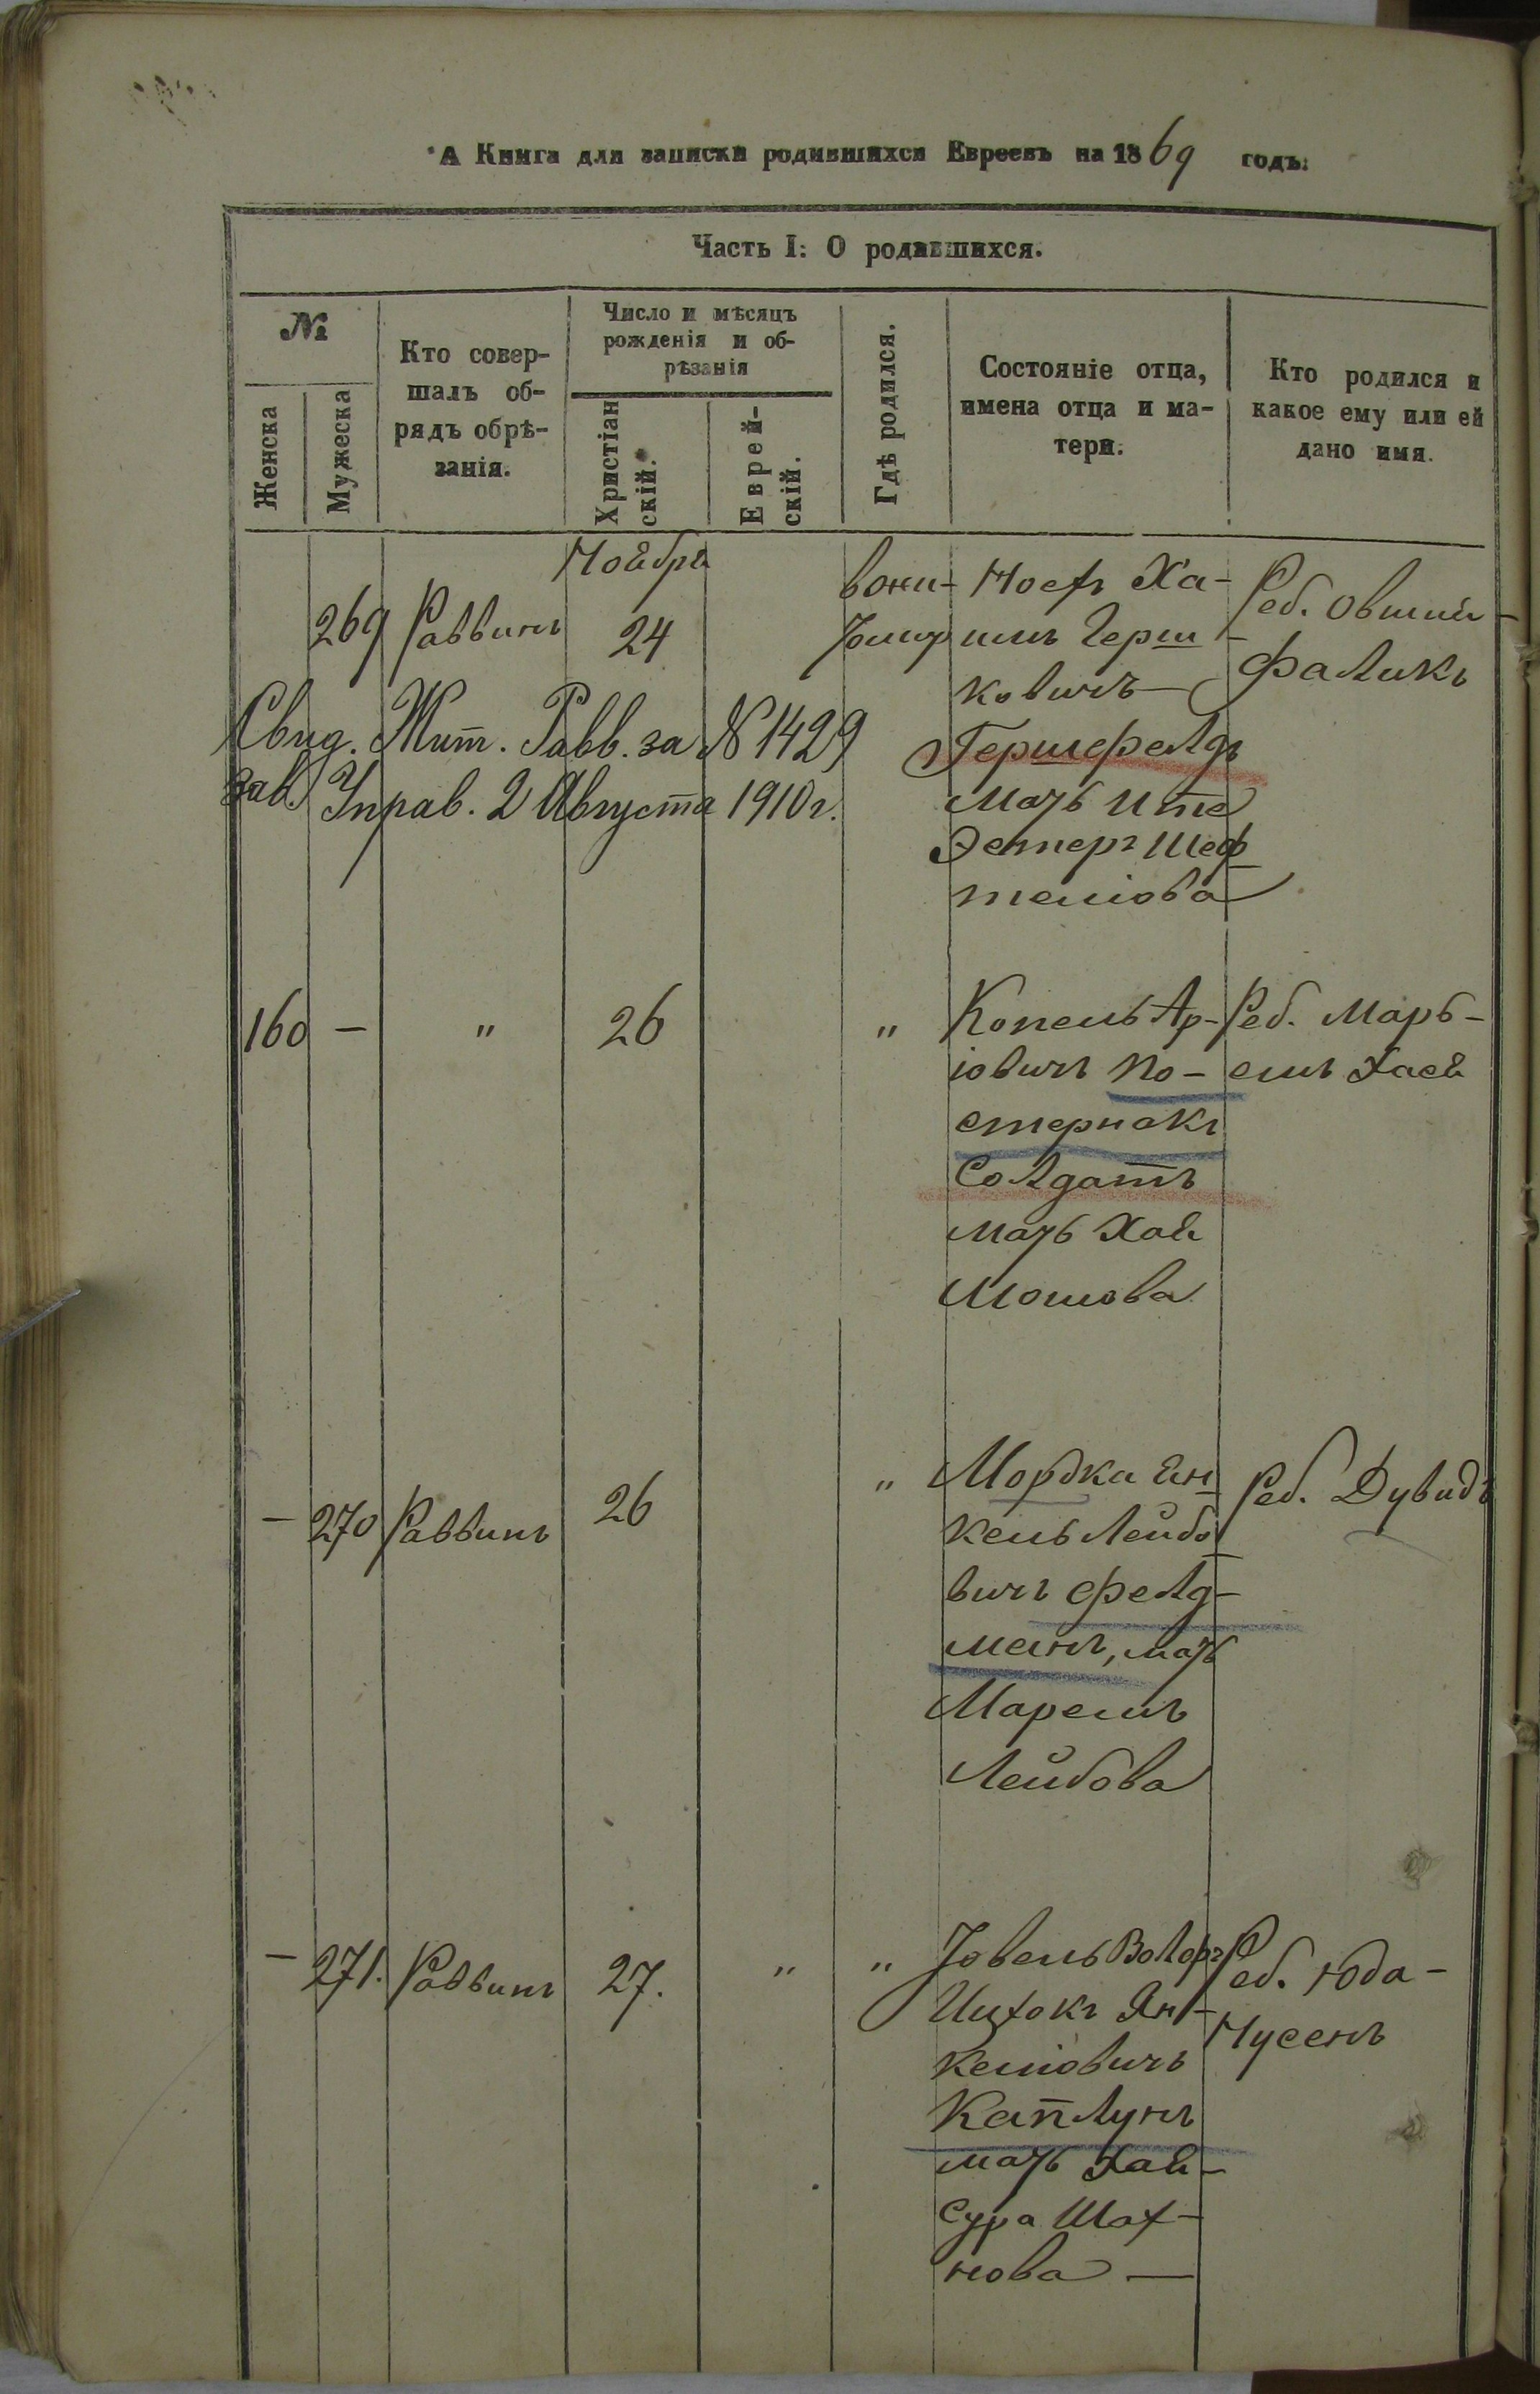 А Книга для записки родившихся Евреевъ на 1869 годъ.
Часть I: О родившихся.
№
Женска
Мужеска
Кто совер-
шалъ об-
рядъ обрѣ-
занія.
Число и мѣсяцъ
рожденія и об-
рѣзанія
Христіан
скій.
Еврей-
скій.
Гдѣ родился.
Состояніе отца,
имена отца и ма-
тери.
Кто родился и
какое ему или ей
дано имя.
269
Раввинъ
Ноября
24
вони-
Іосъ Ха-
имъ Герш
ковичъ —
Гершфелдъ
мать Ите
Эстеръ Шеф
теліова
Реб. Овший-
Фаликъ
Свид. Жит. Равв. за № 1429
зав. Управ. 2 Августа 1910 г.
160
—
"
26
"
Копель Ар-
іовичъ По-
стернакъ
Солдатъ
мать Хая
Мошова
Реб. Марь-
емъ Хася
—
270
Раввинъ
26
"
Мордка Ян
кель Лейбо
вичъ Фелд-
манъ, мать
Маремъ
Лейбова
Реб. Дувидъ
—
271.
Раввинъ
27.
"
"
Іовель Волфъ
Ицхокъ Ян-
келіовичъ
Каплунъ
мать Хая-
Сура Шах-
нова —
Реб. Юда-
Нусенъ